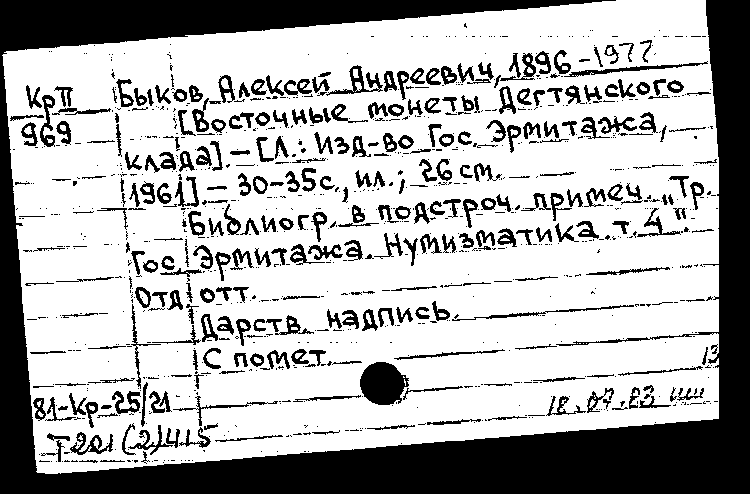 Кр II Быков, Алексей Андреевич, 1896-1977
969 [Восточные монеты Дегтянского
клада].- [Л.: Изд-во Гос. Эрмитажа,
1961].- 30-35с., ил.; 26 см.
Библиогр. в подстроч. примеч. „Тр.
Гос. Эрмитажа. Нумизматика т. 4".
Отд. отт.
Дарств. надпись.
С помет.
13
81-Кр-25/21
18.07.83
Т221(2)415